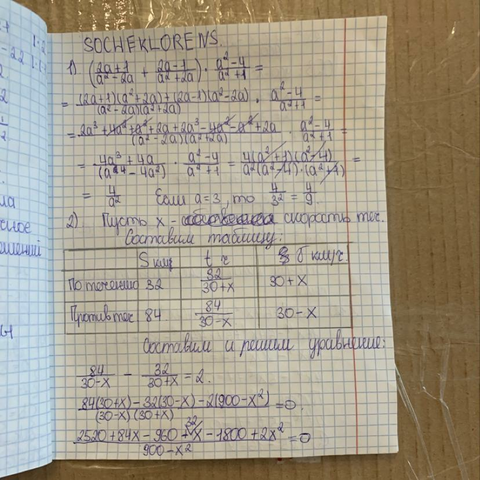 SOCHEKLORENS
1) ((2a+1)/(a²-2a) + (2a-1)/(a²+2a)) · (a²-4)/(a²+1) =
= ((2a+1)(a²+2a)+(2a-1)(a²-2a))/((a²-2a)(a²+2a)) · (a²-4)/(a²+1) =
= (2a³+4a²+a²+2a+2a³-4a²-a²+2a)/((a²-2a)(a²+2a)) · (a²-4)/(a²+1) =
= (4a³+4a)/(a⁴-4a²) · (a²-4)/(a²+1) = (4(a²+1)(a²-4))/(a²(a²-4)·(a²+1)) =
= 4/a² Если a=3, то 4/3² = 4/9
2) Пусть x - скорость теч.
Составим таблицу:
S км t ч км/ч
По течению 32 32/(30+x) 30+x
Против теч. 84 84/(30-x) 30-x
Составим и решим уравнение:
84/(30-x) - 32/(30+x) = 2.
(84(30+x)-32(30-x)-2(900-x²))/((30-x)(30+x)) = 0
(2520+84x-960+32x-1800+2x²)/(900-x²) = 0